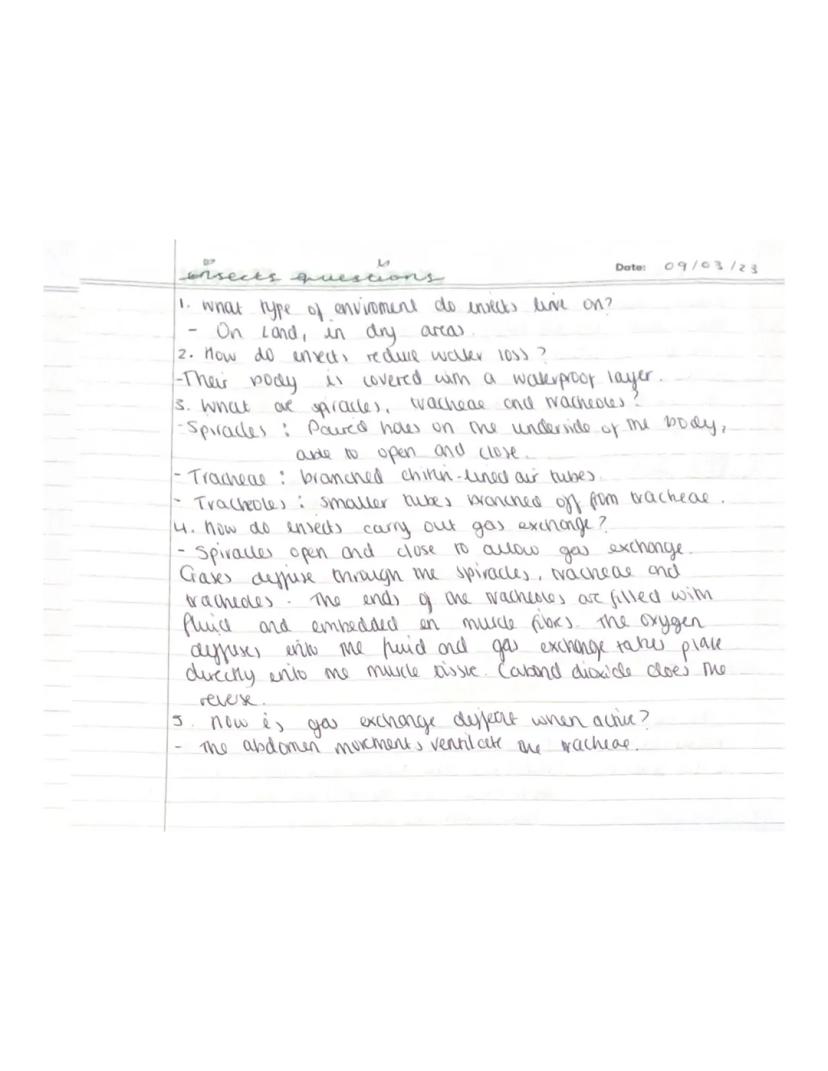 insects questions
Date: 09/03/23
1. What type of enviroment do insects live on?
- On Land, in dry areas.
2. How do insects reduce water loss?
-Their body is covered with a waterproof layer.
3. What are spiracles, tracheae and tracheoles?
-Spiracles: Paired holes on the underside of the body,
able to open and close.
- Tracheae: branched chitin-lined air tubes.
- Tracheoles: smaller tubes branched off from tracheae.
4. How do insects carry out gas exchange?
- Spiracles open and close to allow gas exchange.
Gases diffuse through the spiracles, tracheae and
tracheoles. The ends of the tracheoles are filled with
fluid and embedded in muscle fibres. The oxygen
diffuses into the fluid and gas exchange takes place
directly into the muscle tissue. Carbond dioxide does the
reverse.
5. How is gas exchange different when active?
- The abdomen movements ventilate the tracheae.